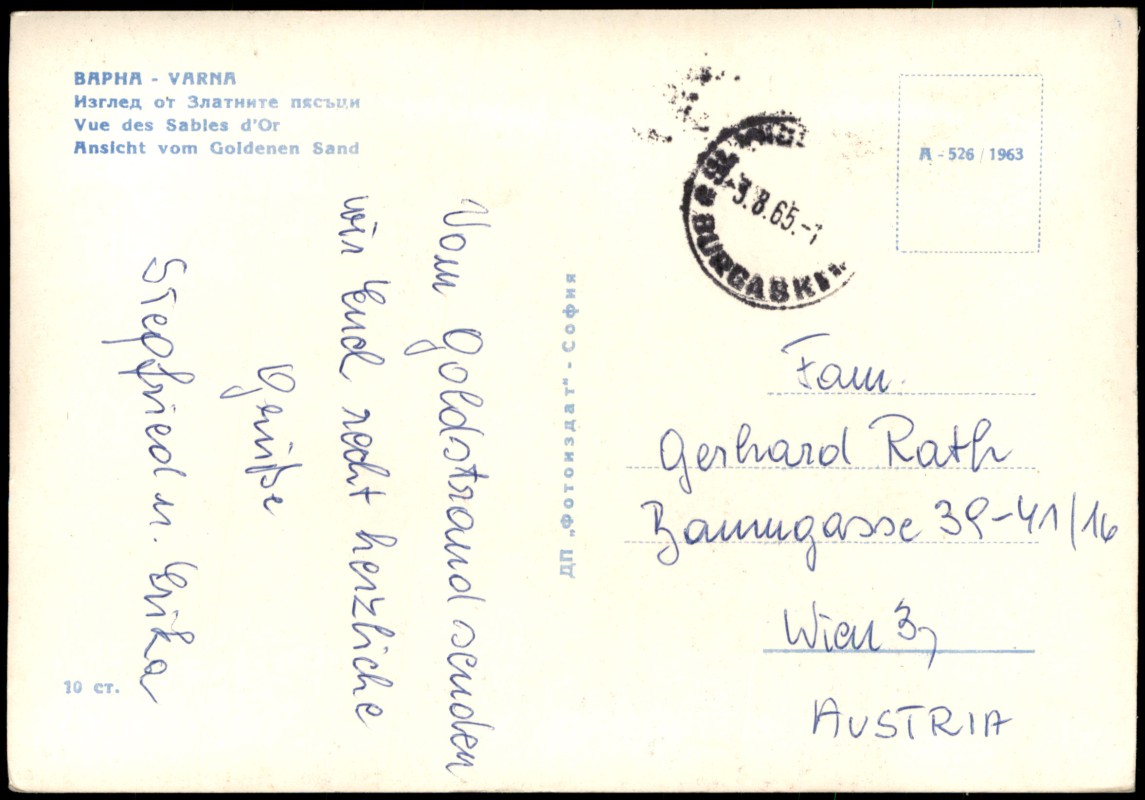 ВАРНА - VARNA
Изглед от Златните пясъци
Vue des Sables d'Or
Ansicht vom Goldenen Sand
A - 526 / 1963
-3.8.65.-7
BURGASKI
Vom Goldstrand senden
wir Euch recht herzliche
Grüße
Siegfried u. Erika
ДП „Фотоиздат" - София
Fam.
Gerhard Rath
Baumgasse 39-41/16
Wien 3,
AUSTRIA
10 ст.